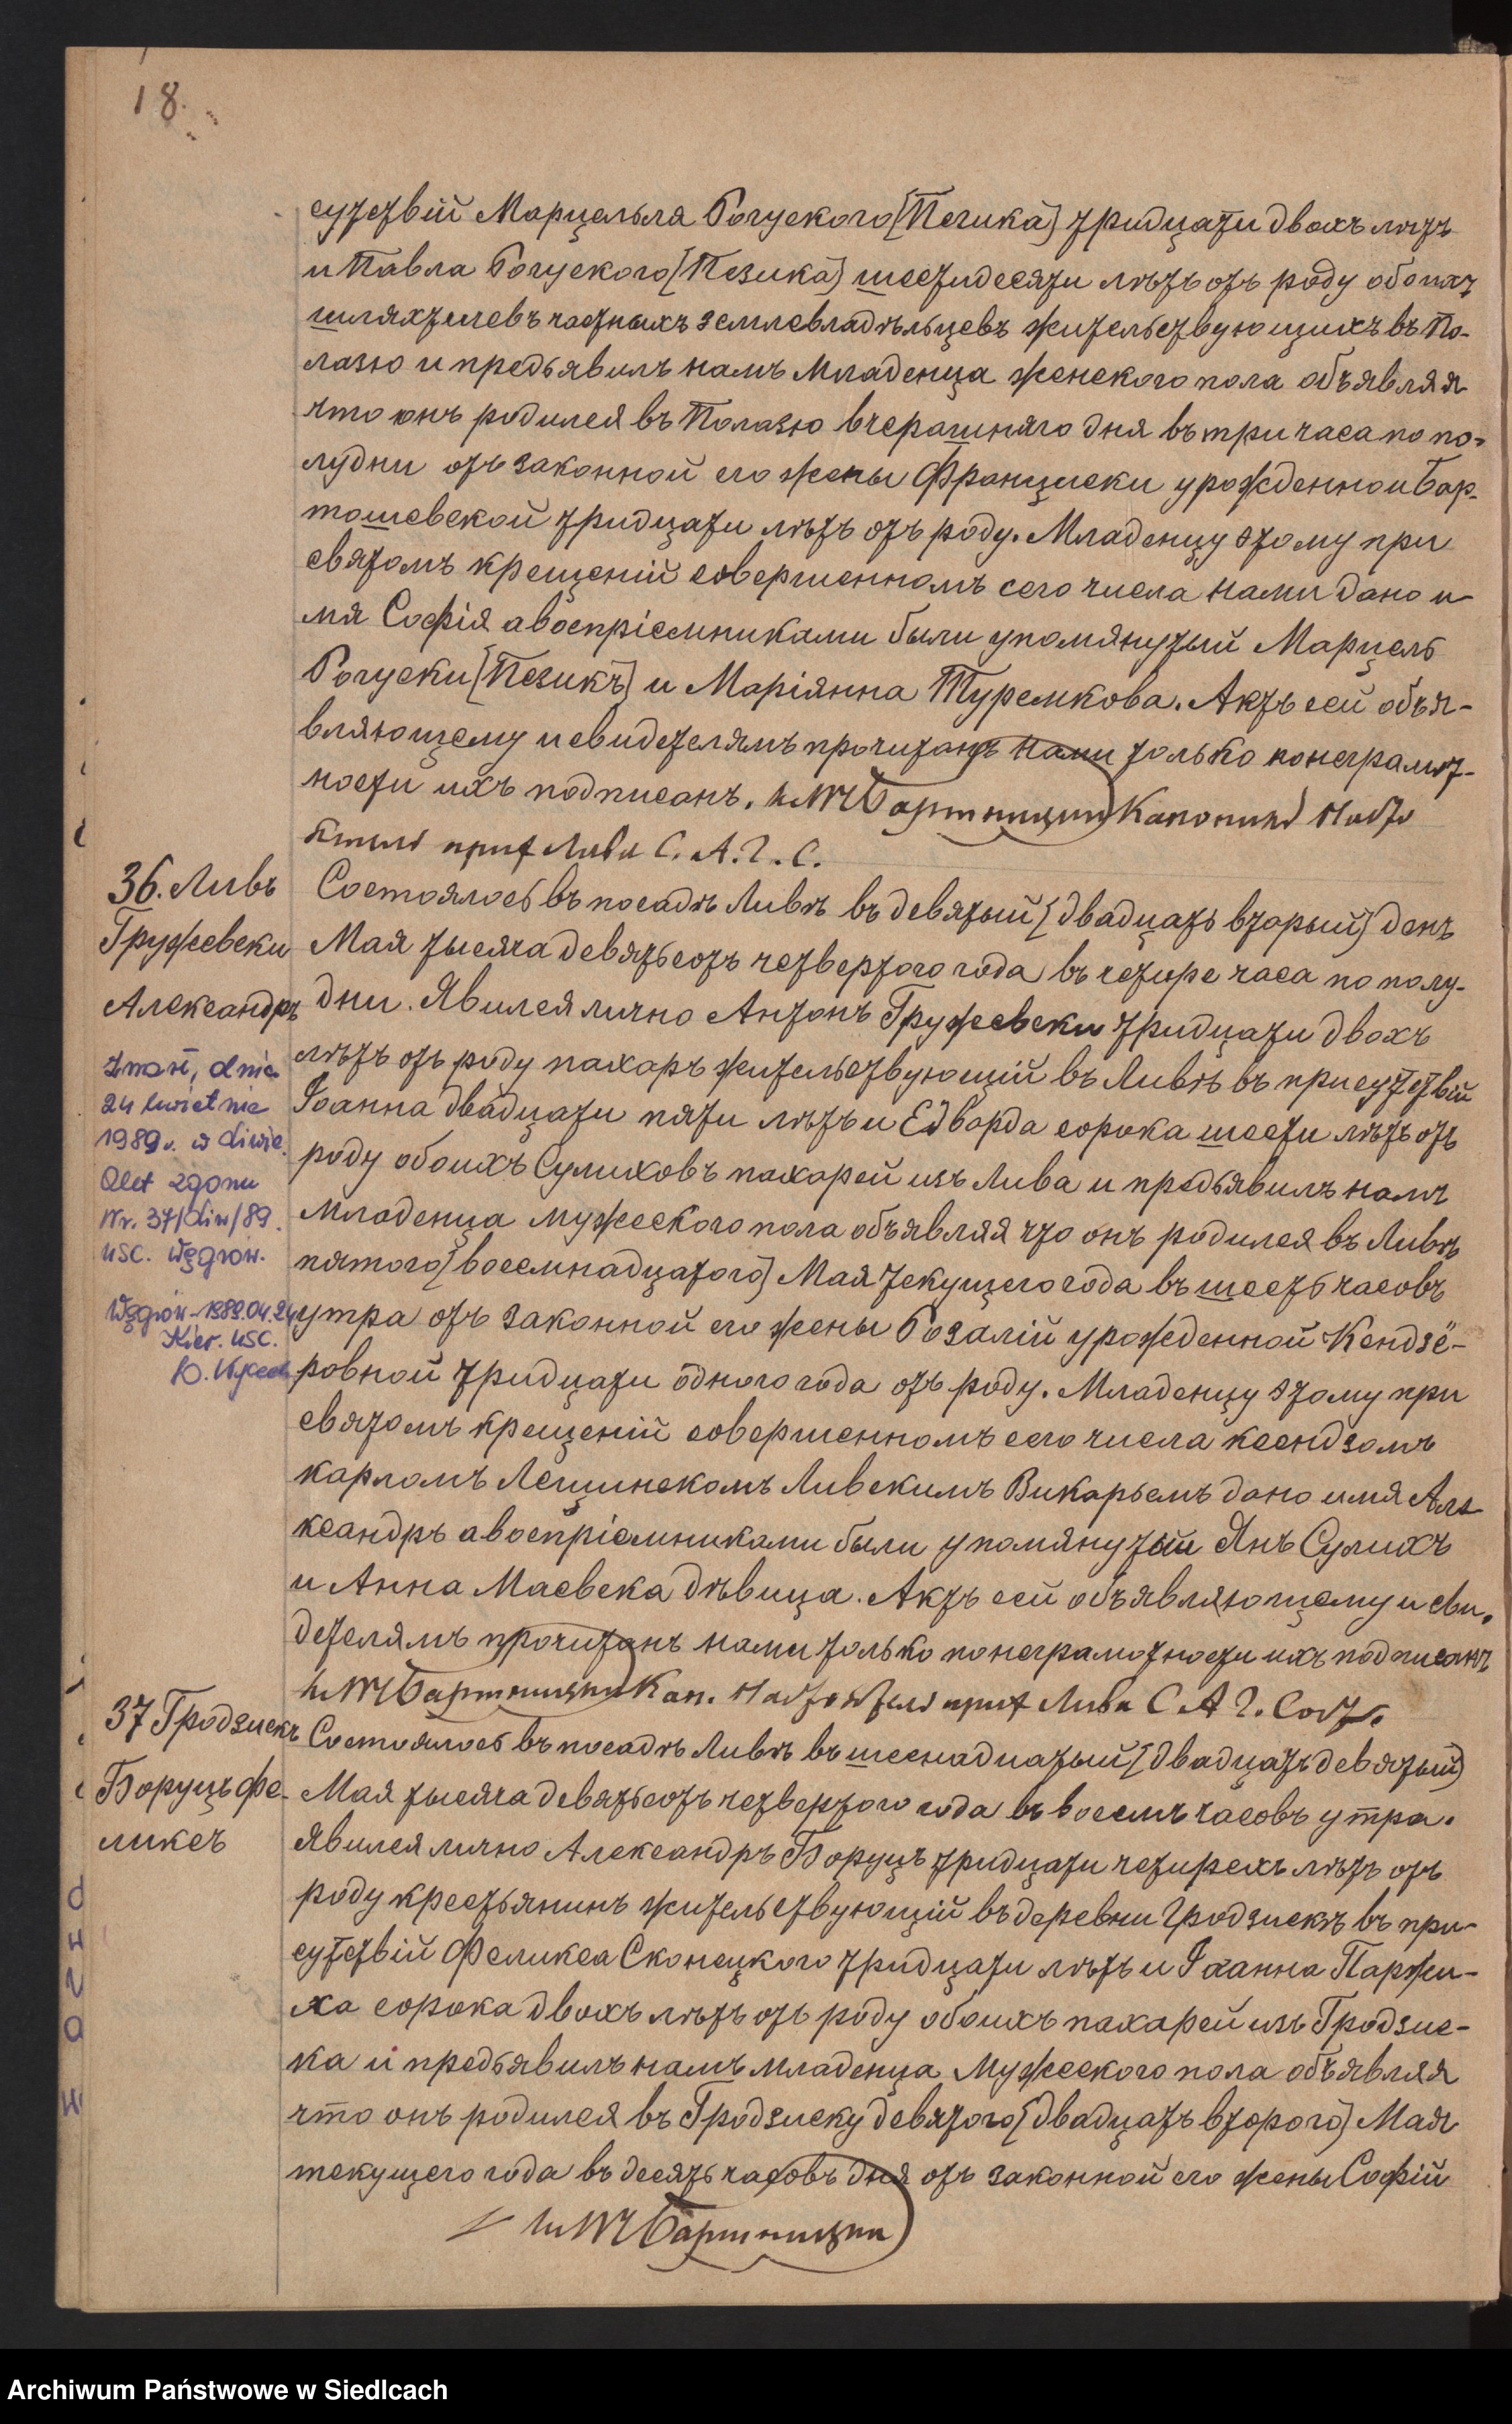 18.
сутствій Марцелья Рогуского [Пезика] тридцати двохъ лѣтъ
и Павла Рогуского [Пезика] шестидесяти лѣтъ отъ роду обоихъ
шляхтичевъ частныхъ землевладѣльцевъ жительствующихъ въ По-
лазю и предъявилъ намъ младенца женского пола объявляя
что онъ родился въ Полазю вчерашняго дня въ три часа по по-
лудни отъ законной его жены Францишки урожденной Бар-
тошевской тридцати лѣтъ отъ роду. Младенцу этому при
святомъ крещеній совершенномъ сего числа нами дано и-
мя Софія а воспріемниками были упомянутый Марцель
Рогуски [Пезикъ] и Маріянна Туремкова. Актъ сей объя-
вляющему и свидетелямъ прочитанъ нами только по неграмот-
ности ихъ подписанъ. Бартницки Каноникъ Насто
ятель прих Лива С. А. Г. С.
36. Ливъ
Гружевски
Александръ
Состоялось въ посадѣ Ливѣ въ девятый [двадцать вторый] день
Мая тысяча девятьсотъ четвертого года въ четыре часа по полу-
дни. Явился лично Антонъ Гружевски тридцати двохъ
лѣтъ отъ роду пахаръ жительствующій въ Ливѣ въ присутствій
Іоанна двадцати пяти лѣтъ и Едварда сорока шести лѣтъ отъ
роду обоихъ Сулиховъ пахарей изъ Лива и предъявилъ намъ
младенца мужеского пола объявляя что онъ родился въ Ливѣ
пятого [восемнадцатого] Мая текущего года въ шесть часовъ
утра отъ законной его жены Розалій урожденной Кендзё-
ровной тридцати одного года отъ роду. Младенцу этому при
святомъ крещеній совершенномъ сего числа ксендзомъ
Карломъ Лещинскомъ Ливскимъ Викарьемъ дано имя Але
ксандръ а воспріемниками были упомянутый Янъ Сулихъ
и Анна Маевска дѣвица. Актъ сей объявляющему и сви-
детелямъ прочитанъ нами только по неграмотности ихъ подписанъ
Бартницки Кан. Настоятель прих Лива С А Г. Сост.
Zmarł, dnia
24 kwietnia
1989 r. w Liwie.
Akt zgonu
Nr. 37/Liw/89.
USC. Węgrów.
Węgrów-1989.04.24
Kier. USC.
37 Гродзискъ
Боруцъ Фе-
ликсъ
Состоялось въ посадѣ Ливѣ въ шеснадцатый [двадцать девятый]
Мая тысяча девятьсотъ четвертого года въ восемъ часовъ утра.
Явился лично Александръ Боруцъ тридцати четирехъ лѣтъ отъ
роду крестьянинъ жительствующій въ деревни Гродзискъ въ при-
сутствій Феликса Сконецкого тридцати лѣтъ и Іоанна Паржи-
ха сорока двохъ лѣтъ отъ роду обоихъ пахарей изъ Гродзис-
ка и предъявилъ намъ младенца мужеского пола объявляя
что онъ родился въ Гродзиску девятого [двадцать второго] Мая
текущего года въ десять часовъ дня отъ законной его жены Софій
Бартницки
Archiwum Państwowe w Siedlcach